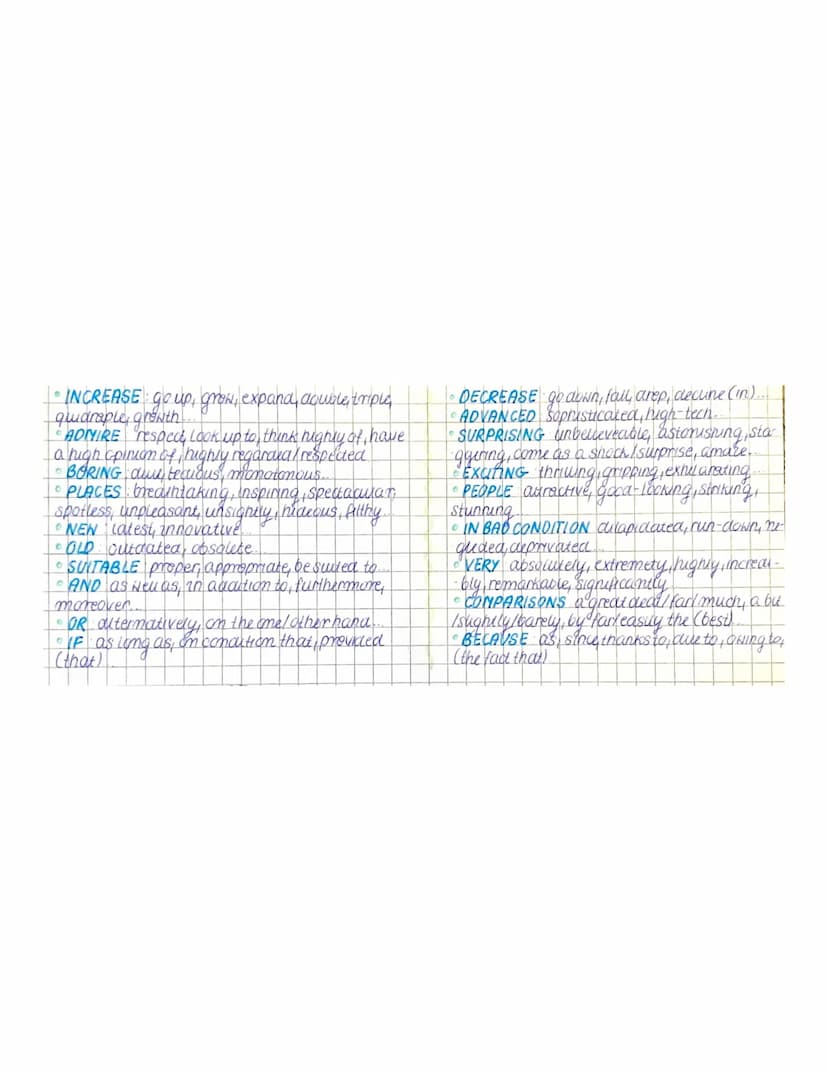 • INCREASE: go up, grow, expand, double, triple,
quadraple, growth...
• ADMIRE: respect, look up to, think highly of, have
a high opinion of, highly regarded/respected
• BORING: dull, tedious, monotonous...
• PLACES: breathtaking, inspiring, spectacular,
spotless, unpleasant, unsightly, hideous, filthy...
• NEW: latest, innovative...
• OLD: outdated, obsolete...
• SUITABLE: proper, appropriate, be suited to...
• AND: as well as, in addition to, furthermore,
moreover...
• OR: alternatively, on the one/other hand...
• IF: as long as, on condition that, provided
(that)
• DECREASE: go down, fall, drop, decline (in)...
• ADVANCED: sophisticated, high-tech...
• SURPRISING: unbelieveable, astonishing, sta-
ggering, come as a shock/surprise, amaze...
• EXCITING: thrilling, gripping, exhilarating...
• PEOPLE: attractive, good-looking, striking,
stunning...
• IN BAD CONDITION: dilapidated, run-down, ne-
glected, deprivated...
• VERY: absolutely, extremely, highly, incredi-
-bly, remarkable, significantly
• COMPARISONS: a great deal/far/much, a bit
/slightly/barely, by far/easily the (best)...
• BECAUSE: as, since, thanks to, due to, owing to,
(the fact that)